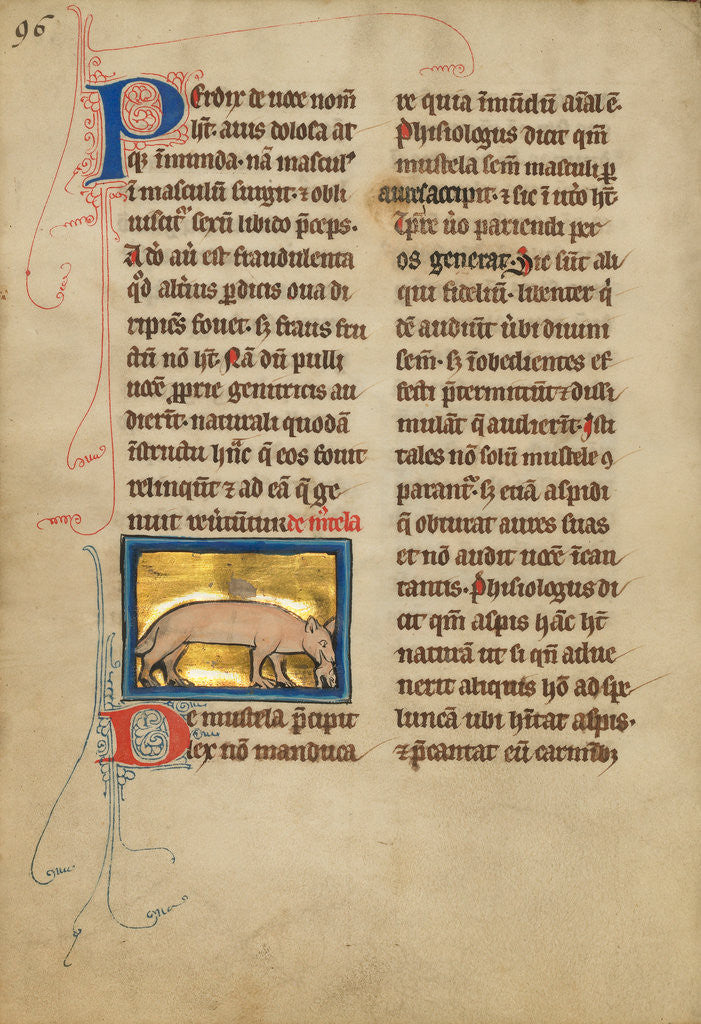 96
Perdix de uoce nom̄
hт̄. auis dolosa at
q̄ īmunda. nā mascul᷒
ī masculū surgit. ⁊ obli
uiscit᷑ sexū libido p̄ceps.
Adō aū est fraudulenta
qͦd alt̄ius ꝑdicis oua di
ripiēs fouet. sꝫ fraus fru
ctū nō ht̄. Nā dū pulli
uocē ꝓprie genitricis au
dierīt. naturali quodā
īstructu hūc q̄ eos fouit
relinqūt ⁊ ad eā q̄ ge
nuit reūtūtur de m̄tela
De mustela p̄cipit
lex nō manduca
re quia īmūdū aīal ē.
Phisiologus dicit qm̄
mustela sem̄ masculi ꝑ
aures accipit. ⁊ sic ī ut̄o ht̄.
Tp̄re ūo pariendi per
os generat. Sic sūt ali
qui fideliū. libenter q̄
dē audiūt ūbi diuini
sem̄. sꝫ īobedientes ef
fecti p̄termittūt ⁊ dissi
mulāt q̄ audierīt. Isti
tales nō solū mustele ꝯ
parant᷑. sꝫ etiā aspidi
q̄ obturat aures suas
et nō audit uocē īcan
tantis. Phisiologus di
cit qm̄ aspis hāc ht̄
naturā ut si qn̄ adue
nerit aliquis hō ad spe
luncā ubi hītat aspis.
⁊ p̄cantat eū carmībꝫ